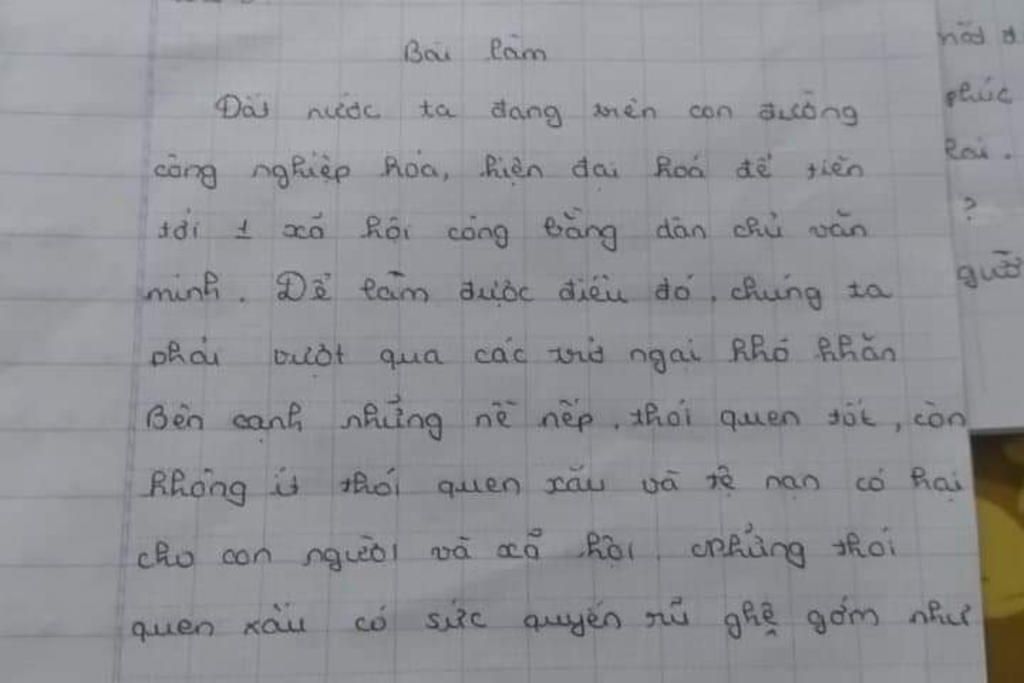 Bài làm
Đất nước ta đang trên con đường
công nghiệp hóa, hiện đại hoá để tiến
tới 1 xã hội công bằng dân chủ văn
minh. Để làm được điều đó, chúng ta
phải vượt qua các trở ngại khó khăn
Bên cạnh những nề nếp, thói quen tốt, còn
không ít thói quen xấu và tệ nạn có hại
cho con người và xã hội. Những thói
quen xấu có sức quyến rũ ghê gớm như
phúc
lai.
?